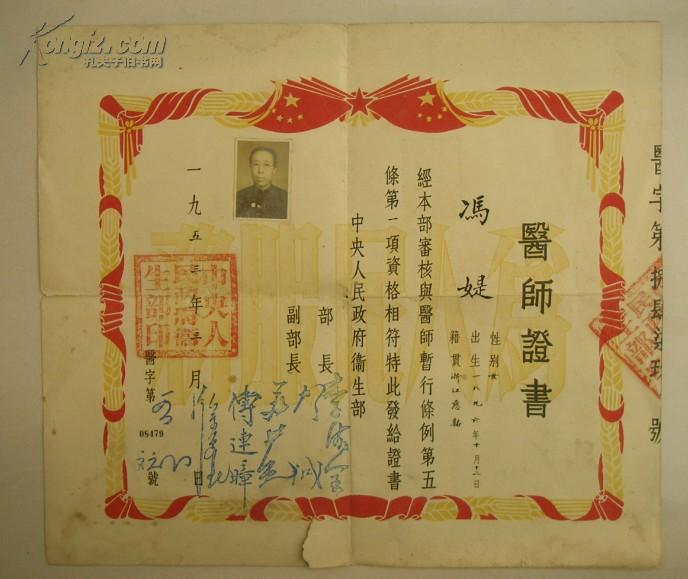 Kongfz.com
孔夫子旧书网
醫師證書
馮媞
性別女
出生一八九六年十月十二日
籍貫浙江慈谿
經本部審核與醫師暫行條例第五
條第一項資格相符特此發給證書
中央人民政府衞生部
部長 李德全
副部長
傅連暲
一九五三年三月 日
醫字第
08479
號
中央人
民政府衞
生部印